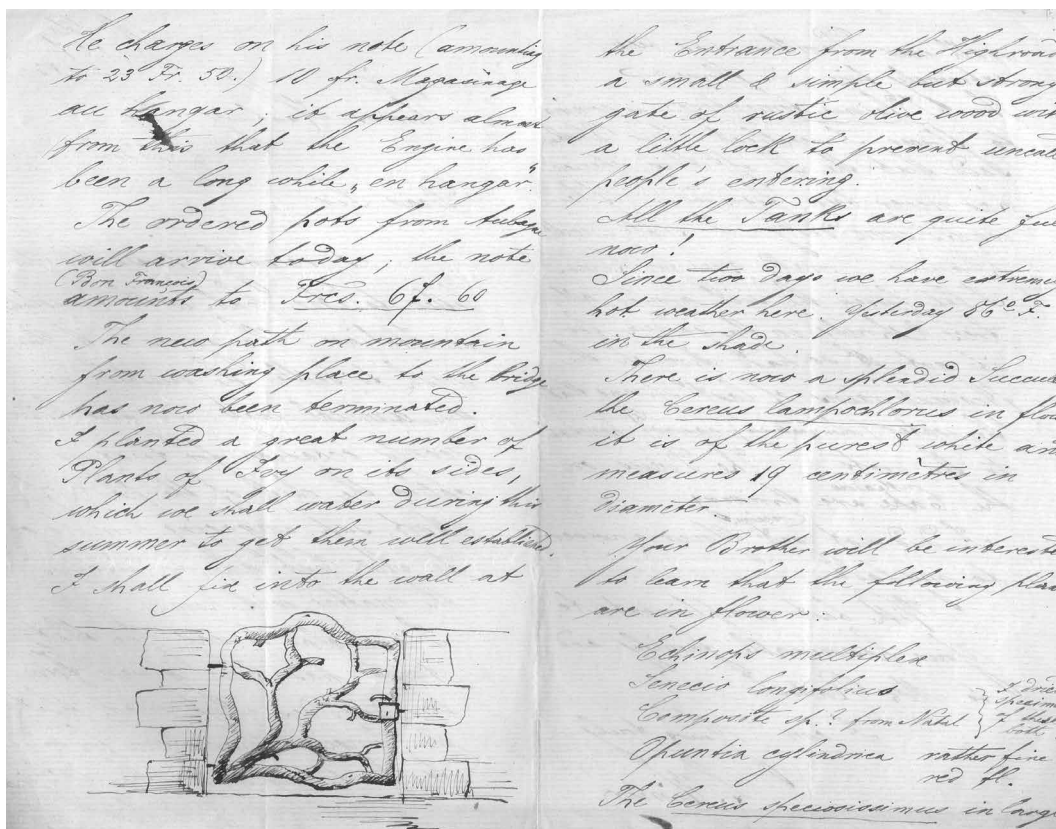 He charges on his note (amounting
to 23 Fr. 50.) 10 fr. Magasinage
au hangar; it appears almost
from this that the Engine has
been a long while „en hangar".
The ordered pots from Aubagne
will arrive today; the note
(Bon Francois)
amounts to Frcs. 67. 60
The new path on mountain
from washing place to the bridge
has now been terminated.
I planted a great number of
Plants of Ivy on its sides,
which we shall water during this
summer to get them well established.
I shall fix into the wall at
the Entrance from the Highroad
a small & simple but strong
gate of rustic olive wood with
a little lock to prevent
people's entering.
All the Tanks are quite full
now!
Since two days we have extreme
hot weather here. Yesterday 86° F.
in the shade.
There is now a splendid
the Cereus lampochlorus in flow
it is of the purest white an
measures 19 centimètres in
diameter.
Your Brother will be interest
to learn that the following pla
are in flower:
Echinops multiplex
Senecio longifolius
Composite sp.? from Natal
I drie
specim
of thes
both
Opuntia cylindrica rather fine
red fl.
The Cereus speciosissimus in larg